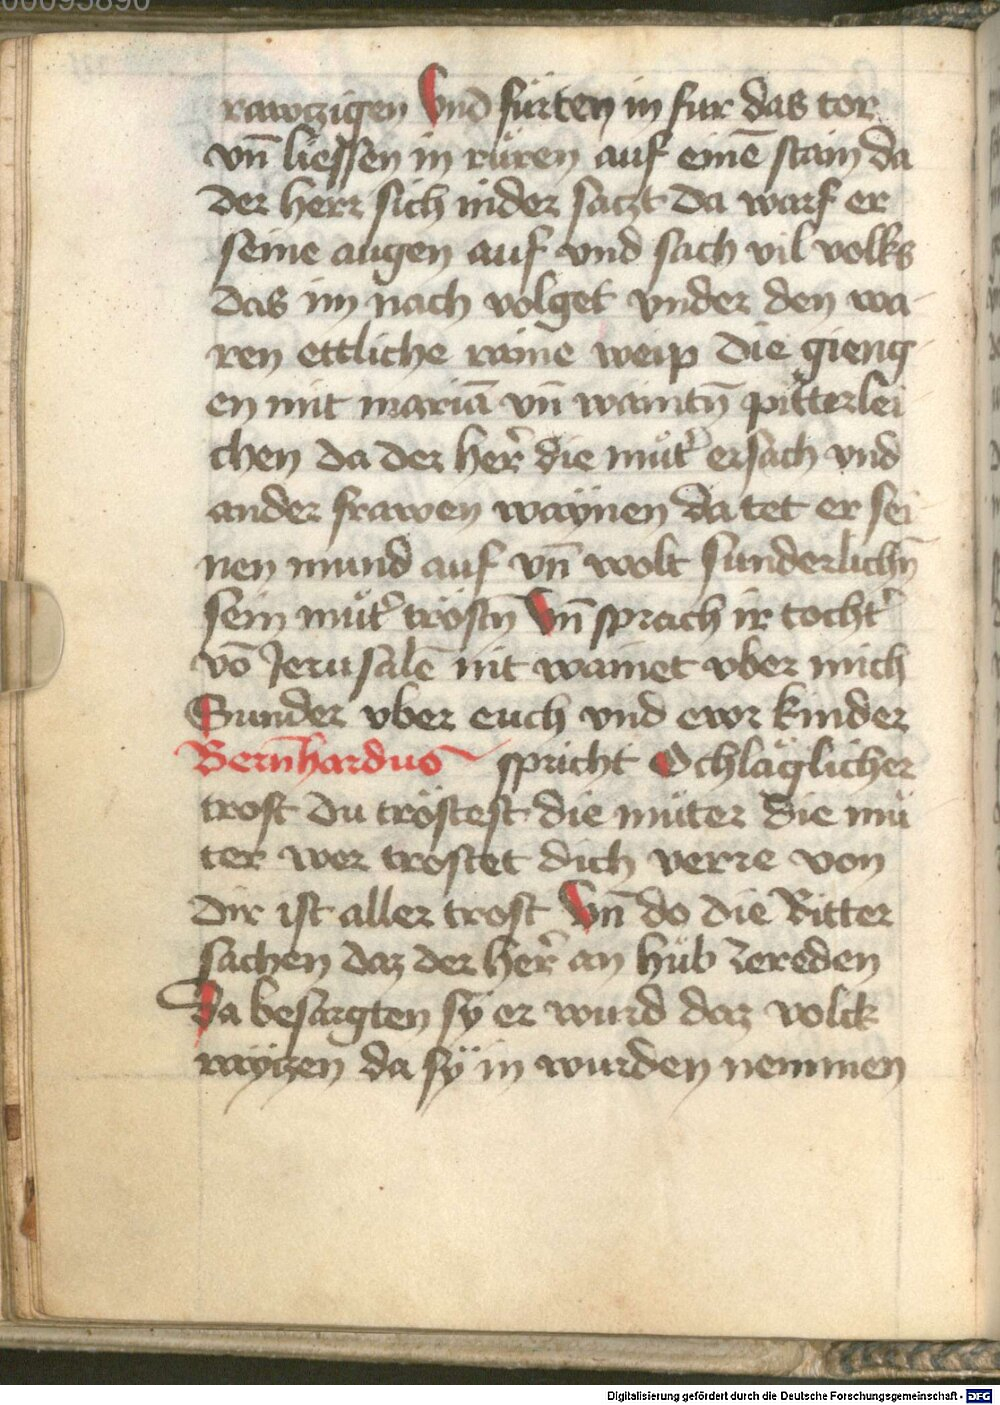 00095890
rawczigen Vnd fürten in fur das tor
vn̄ liessen in rüren auf einē stain da
der herr sich nider saczt da warf er
seine augen auf vnd sach vil volks
das im nach volget vnder den wa-
ren ettliche raine weip die gieng-
en mit mariā vn̄ waintn̄ pitterlei
chen da der her̛ die mut̛ ersach vnd
ander frawen waÿnen da tet er sei-
nen mund auf vn̄ wolt sunderlichn̄
sein mut̛ tröstn̄ Vn̄ sprach ir tocht̛
vō Jerusalē nit wainet vber mich
Sunder vber euch vnd ewr kinder
Bern̄hardus spricht O chläglicher
trost du tröstest die müter die mü
ter wer trostet dich verre von
dir ist aller trost Vn̄ do die Ritter
sachen daz der her̛ an hüb zereden
Da besargten sÿ er wurd daz volck
wayczen da sÿ in wurden nemmen
Digitalisierung gefördert durch die Deutsche Forschungsgemeinschaft - DFG